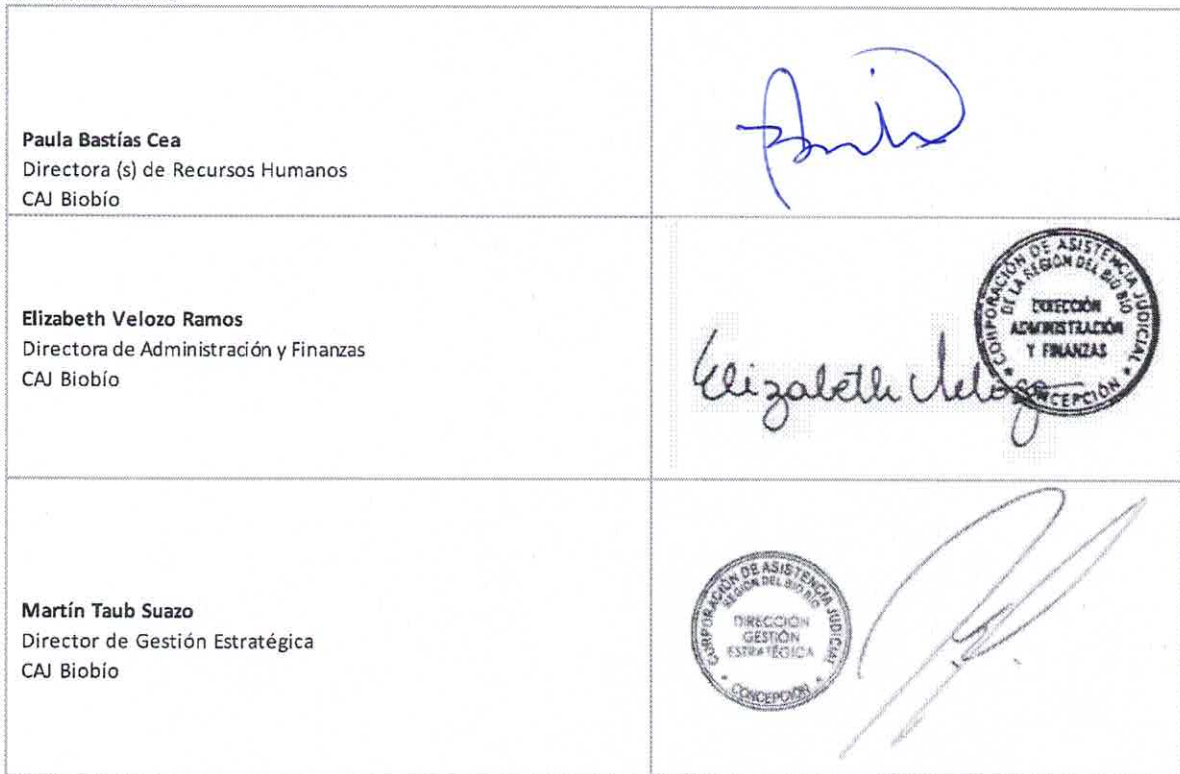 Paula Bastías Cea
Directora (s) de Recursos Humanos
CAJ Biobío
Elizabeth Velozo Ramos
Directora de Administración y Finanzas
CAJ Biobío
Elizabeth Veloz
CORPORACIÓN DE ASISTENCIA JUDICIAL
DE LA REGION DEL BIO BIO
DIRECCIÓN
ADMINISTRACIÓN
Y FINANZAS
CONCEPCIÓN
Martín Taub Suazo
Director de Gestión Estratégica
CAJ Biobío
CORPORACIÓN DE ASISTENCIA JUDICIAL
REGION DEL BIO BIO
DIRECCIÓN
GESTIÓN
ESTRATÉGICA
CONCEPCIÓN